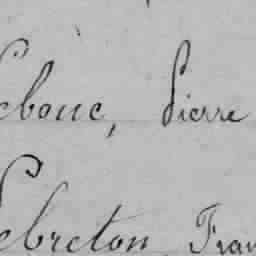 Lebouc, Pierre
Lebreton, Fran